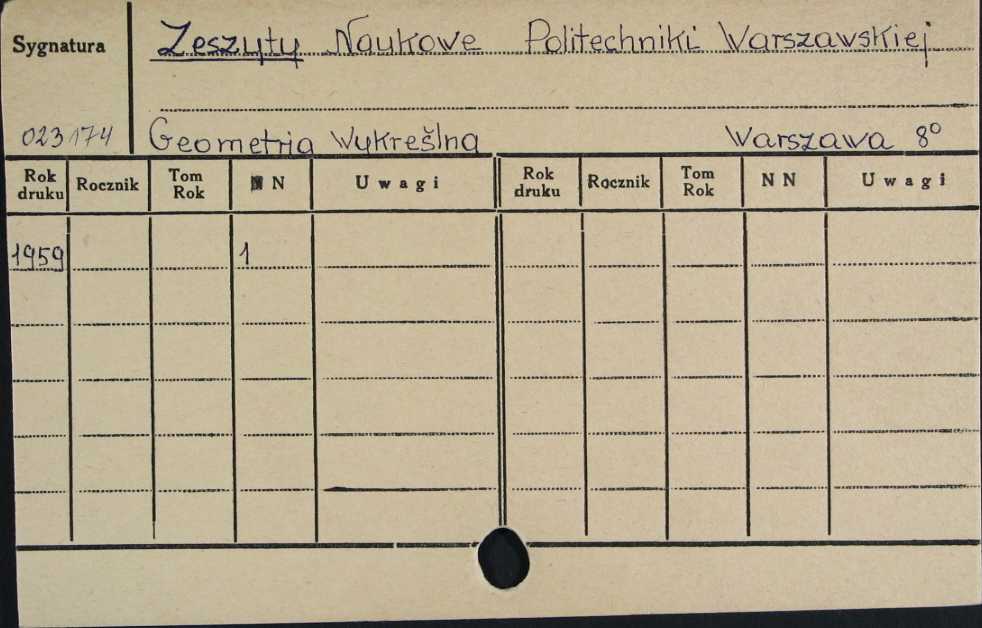 Sygnatura
Zeszyty Naukowe Politechniki Warszawskiej
023174 Geometria Wykreślna Warszawa 8°
Rok druku Rocznik Tom Rok N Uwagi Rok druku Rocznik Tom Rok NN Uwagi
1959 1